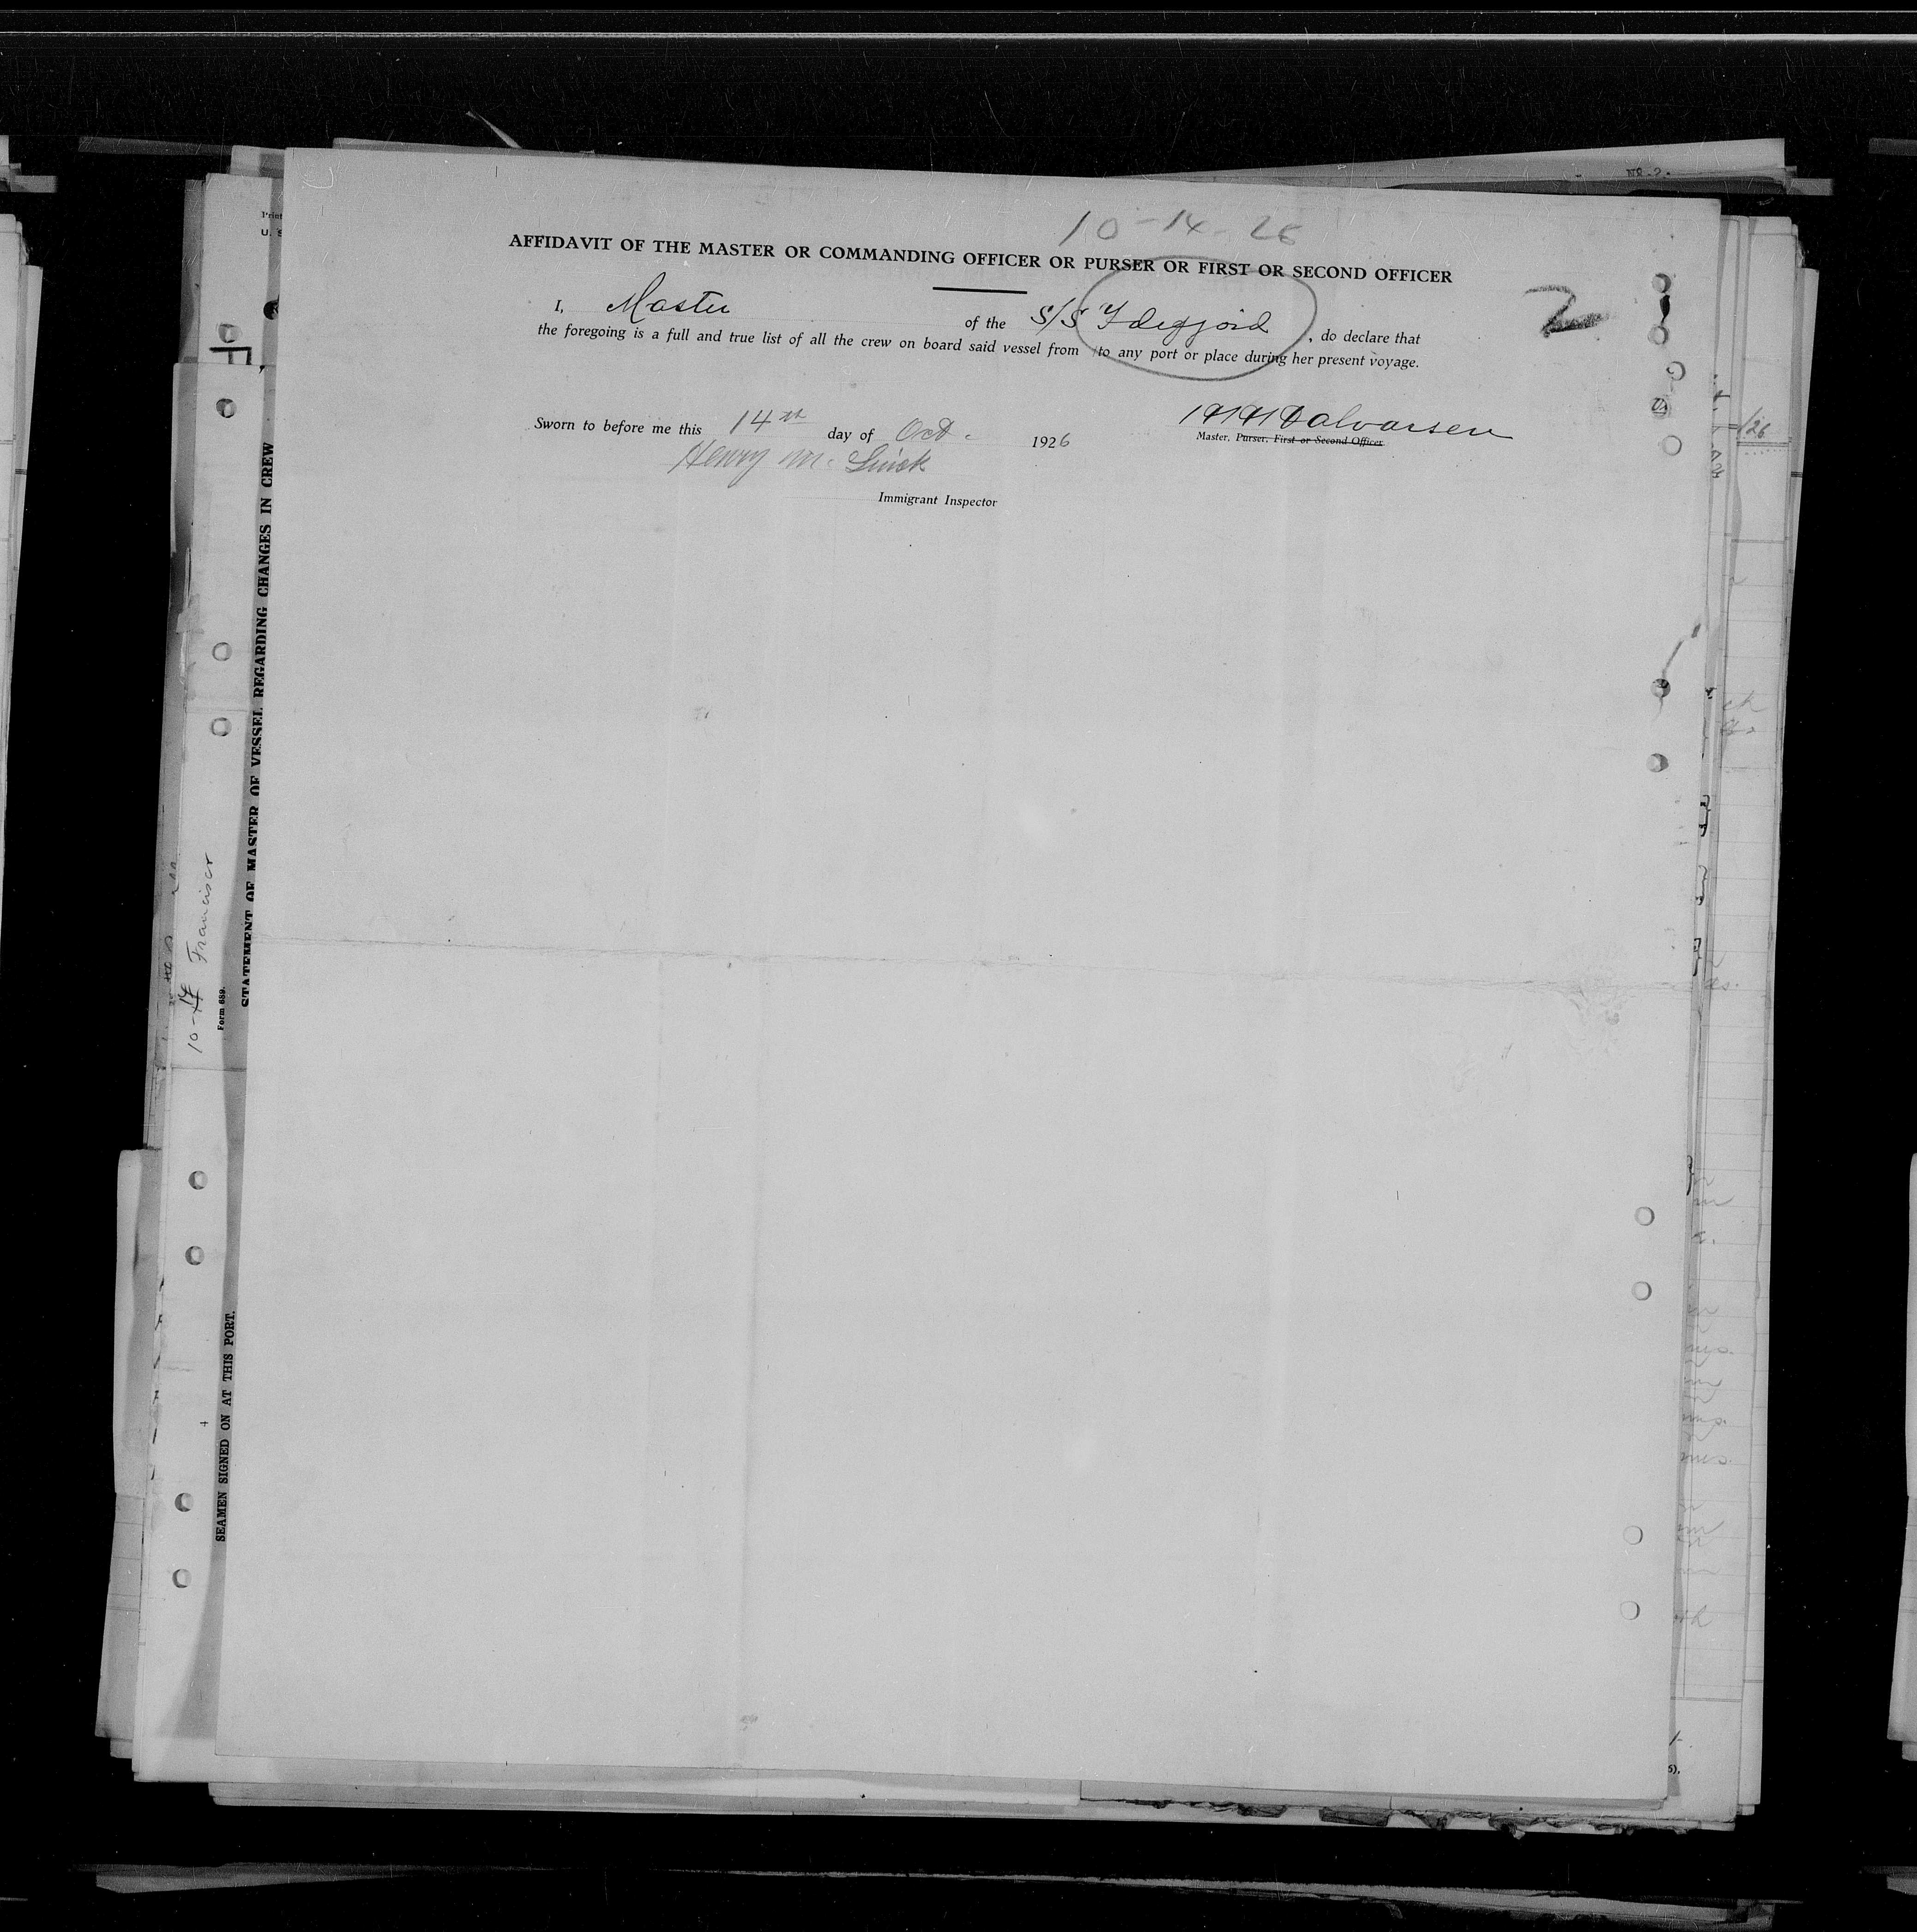 NR. 2.
10-14-26
AFFIDAVIT OF THE MASTER OR COMMANDING OFFICER OR PURSER OR FIRST OR SECOND OFFICER
2
I, Master of the S/S Idefjord, do declare that
the foregoing is a full and true list of all the crew on board said vessel from / to any port or place during her present voyage.
Halvorsen
Sworn to before me this 14th day of Oct. 1926
Master, Purser, First or Second Officer
Henry M.
Immigrant Inspector
STATEMENT OF MASTER OF VESSEL REGARDING CHANGES IN CREW
Form 689.
10-14 Francisco
SEAMEN SIGNED ON AT THIS PORT.